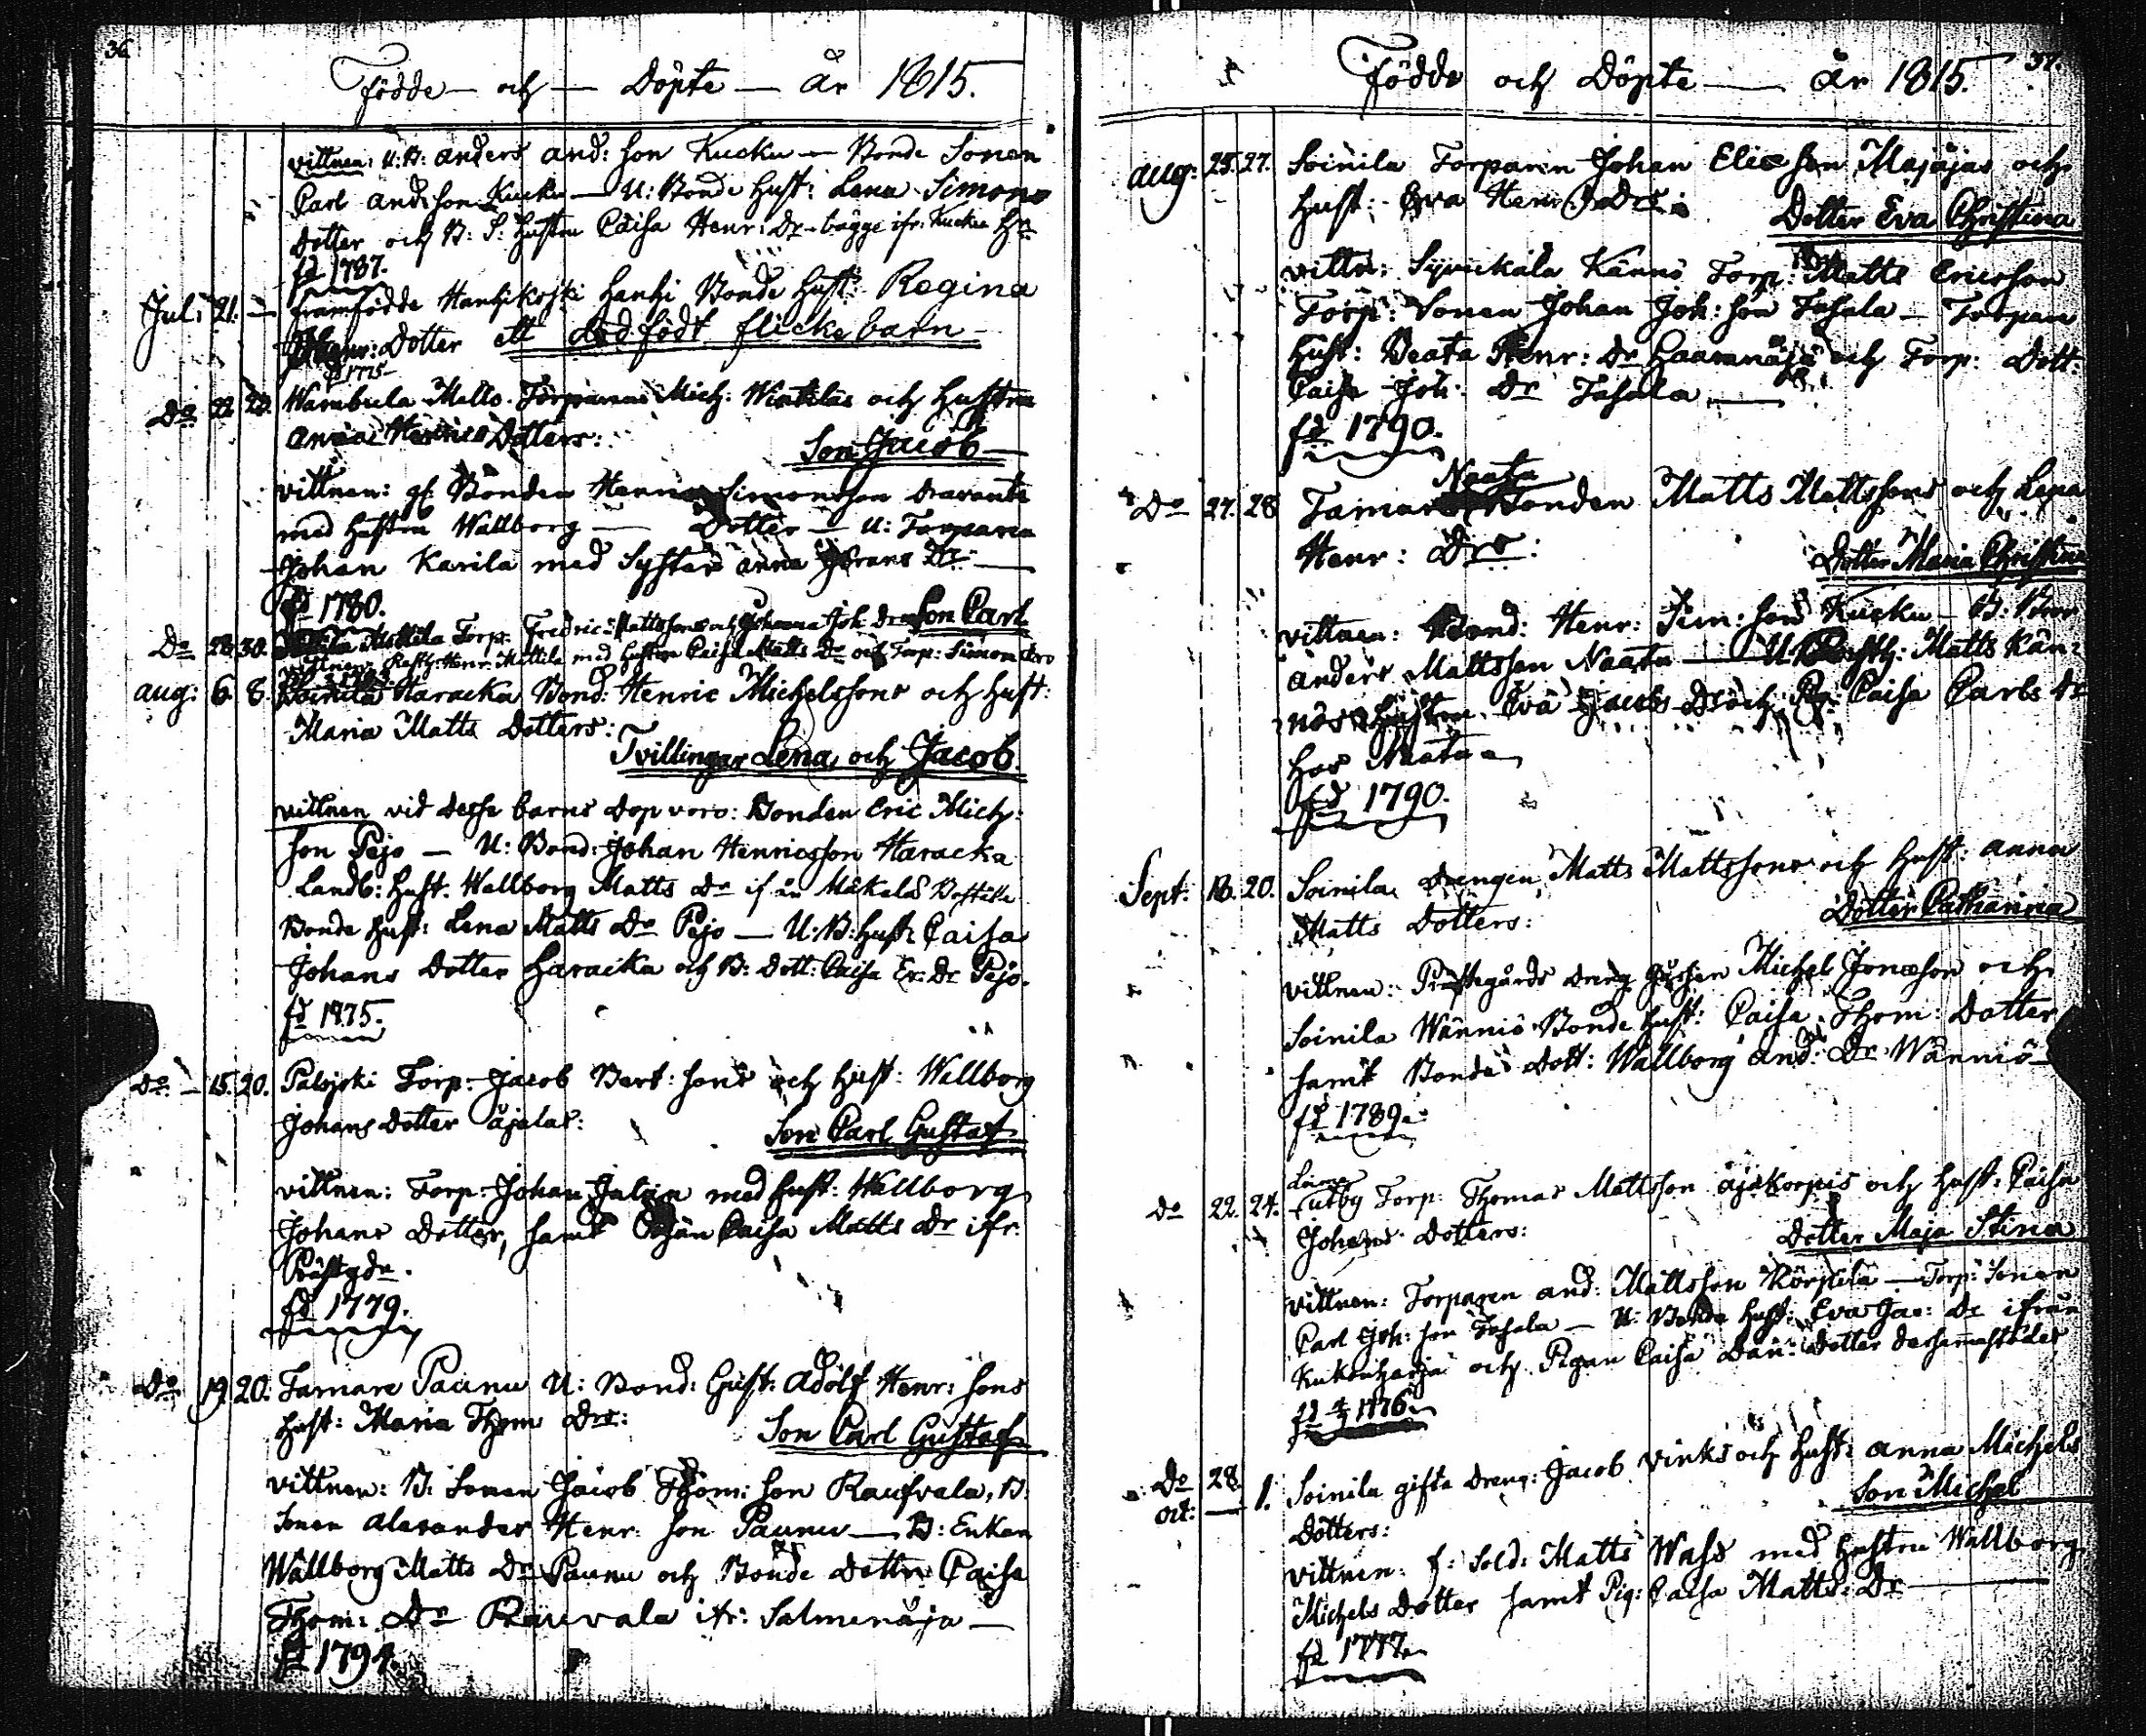 36.
Födde — och — Döpte — År 1815.
vittnen: U: B: Anders And: Son Kucku — Bonde Sonen
Carl And: Son Kucku — U: Bonde Hust: Lena Simons
Dotter och B: S: Hustru Caisa Henr: Dr bägge ifr: Kucku
fd 1787.
Jul: 21. — Framfödde Hanhikoski Hanhi Bonde Hust: Regina
Dotter ett dödfödt flicke barn —
fd 1775
Do 22. 23. Warabiela Torparens Mich: och Hustru
Dotters: Son Jacob —
vittnen: gl: Bonden Simonsson
med Hustru Wallborg — Dotter — U: Torparen
Johan Karila med Syster Anna Dr —
fd 1780.
Do 28. 30. Mattila Torp: Fredric Mattssons och Johanna Joh: Drs Son Carl
vittnen: Henr: Mattila med Hustru Caisa Matts Dr och Torp: Simon
Aug: 6. 8. Haracka Bond: Henric Michelssons och Hust:
Maria Matts Dotters:
Tvillingar Lena och Jacob.
vittnen vid desse barns Dop voro: Bonden Eric Mich:
Son Pejo — U: Bond: Johan Henricsson Haracka
Landb: Hust: Wallborg Matts Dr if: än Mäkelä
Bonde Hust: Lena Matts Dr Pejo — U: B: Hust: Caisa
Johans Dotter Haracka och B: Dott: Caisa Er: Dr Pejo.
fd 1775.
Do — 15. 20. Palojoki Torp: Jacob Bert: Sons och Hust: Wallborg
Johans Dotter Äjälas:
Son Carl Gustaf
vittnen: Torp: Johan med Hust: Wallborg
Johans Dotter, samt Caisa Matts Dr ifr:
Prästgdn.
fd 1779.
Do 19. 20. Tamare Paunu U: Bond: Gust: Adolf Henr: Sons
Hust: Maria Thom Drs:
Son Carl Gustaf
vittnen: B: Sonen Jacob Thom: Son Raufvala, B:
Sonen Alexander Henr: Son Paunu — B: Enkan
Wallborg Matts Dr Paunu och Bonde Dottr: Caisa
Thom: Dr Rauvala ifr: Salmenäja —
fd 1794.
37.
Födde och Döpte — År 1815.
Aug: 25. 27. Soinila Torparen Johan Eliæson Majajas och
Hust: Eva Henr: Drs: Dotter Eva Christina
vittn: Syvickälä Kännö Torp: Matts Ericsson
Torp: Sonen Johan Joh: Son Tasala — Torpare
Hust: Beata Henr: Dr och Torp: Dott:
Caisa Joh: Dr Tasala —
fd 1790.
Naata
Do 27. 28 Tamare Bonden Matts Mattssons och Lena
Henr: Drs: Dotter Maria Christina
vittnen: Bond: Henr: Sim: Son Kucku — B:
Anders Mattsson Naata — U: Matts Kän-
nös Hustru Eva Jacobs Dr och Caisa Carls Dr
hos Naata —
fd 1790.
Sept: 18. 20. Soinila Drengen Matts Mattssons och Hust: Anna
Matts Dotters: Dotter Catharina
vittnen: Prästegårds Dreng Michel Jonæson och
Soinila Wänniö Bonde Hust: Caisa Thom: Dotter
samt Bonde Dott: Wallborg And: Dr Wänniö —
fd 1789.
Do 22. 24. Torp: Thomas Mattsson Äjäkorpis och Hust: Caisa
Johans Dotters: Dotter Maja Stina
vittnen: Torparen And: Mattsson Körpilä — Torp: Sonen
Carl Joh: Son Tasala — U: Bonde Hust: Eva Jac: Dr ifrån
Kukonharja och Pigan Caisa Dan: Dotter dersammastädes
fd 1776.
Do 28. Oct: — 1. Soinila gifta Dreng: Jacob Vinks och Hust: Anna Michels
Dotters: Son Michel
vittnen: f: Sold: Matts Wass med Hustru Wallborg
Michels Dotter samt Pig: Caisa Matts: Dr —
fd 1777.